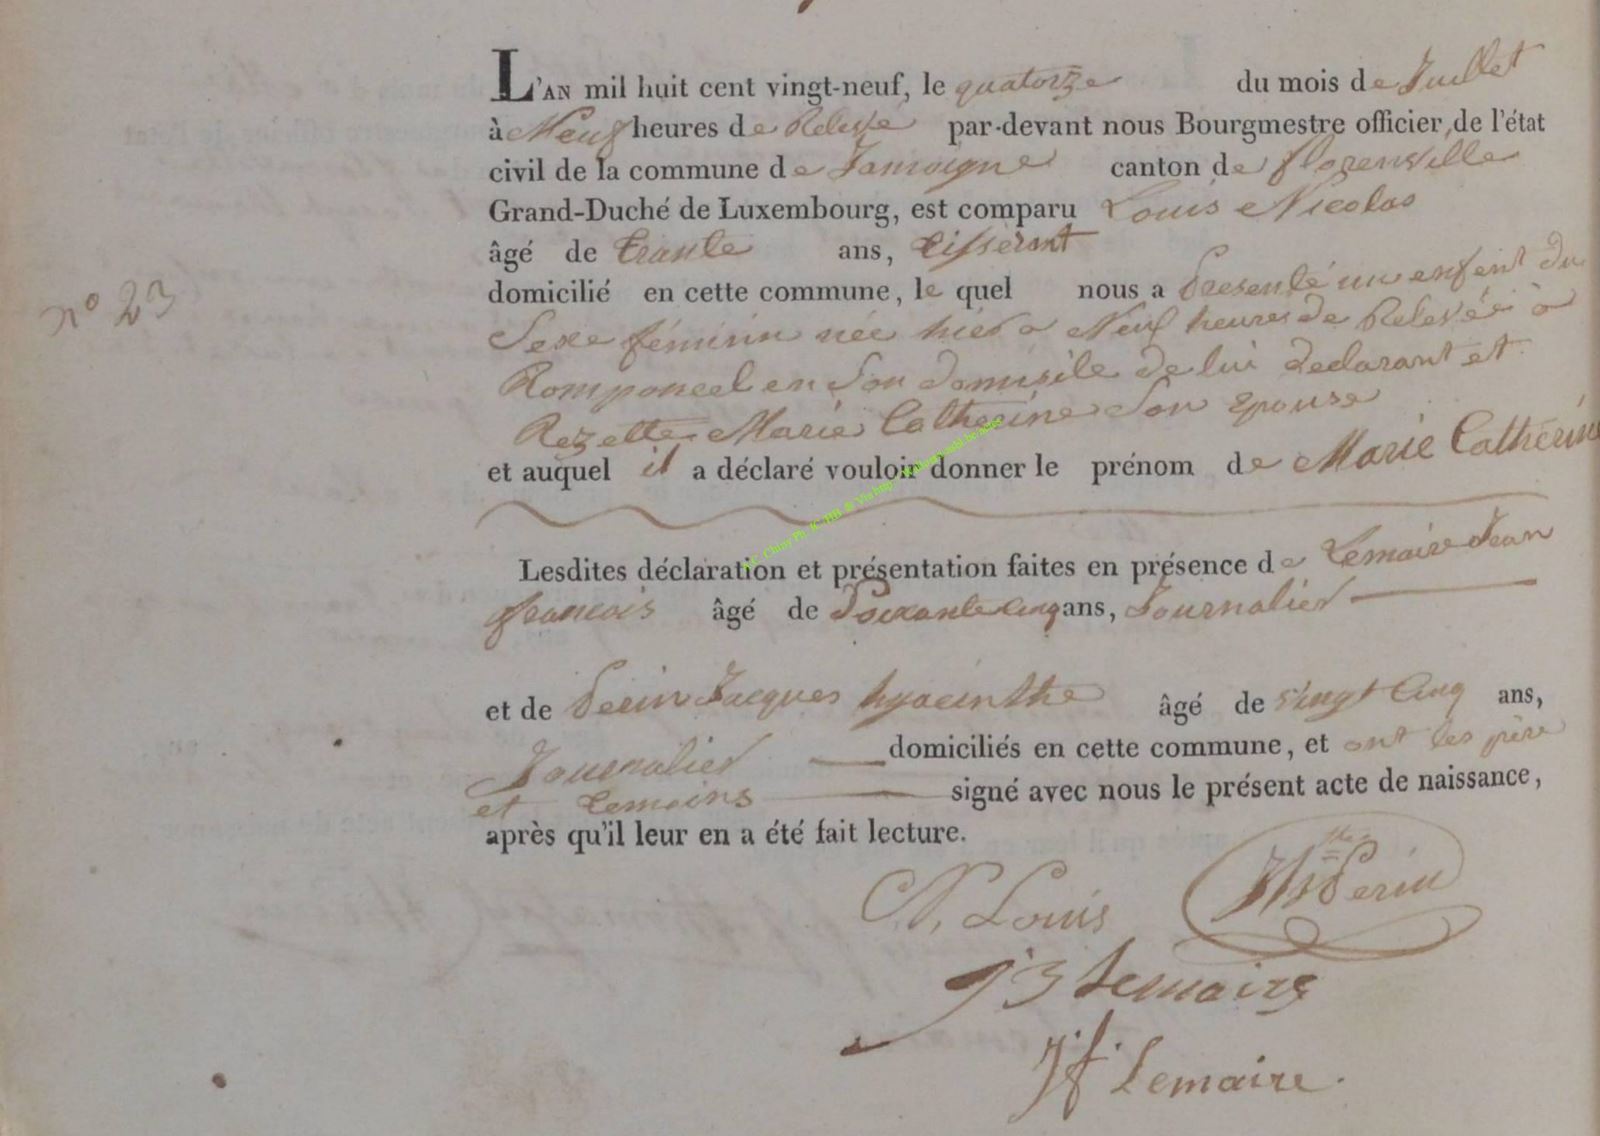 L'AN mil huit cent vingt-neuf, le quatorze du mois de Juillet
à Neuf heures de Relevée par-devant nous Bourgmestre officier de l'état
civil de la commune de Jamoigne canton de florenville
Grand-Duché de Luxembourg, est comparu Louis Nicolas
âgé de trante ans, tisserant
domicilié en cette commune, le quel nous a presenté un enfent du
n° 23
Sexe féminin née hier a Neuf heures de Relevée à
Romponcel en Son domicile de lui declarant et
Rezette Marie Catherine Son Epouse
et auquel il a déclaré vouloir donner le prénom de Marie Catherine
Lesdites déclaration et présentation faites en présence de Lemaire Jean
francois âgé de Soixante cinq ans, Journalier
et de Perin Jacques hyacinthe âgé de vingt Cinq ans,
Journalier domiciliés en cette commune, et ont les père
et temoins signé avec nous le présent acte de naissance,
après qu'il leur en a été fait lecture.
N. Louis Perin
Lemaire
Jf Lemaire.